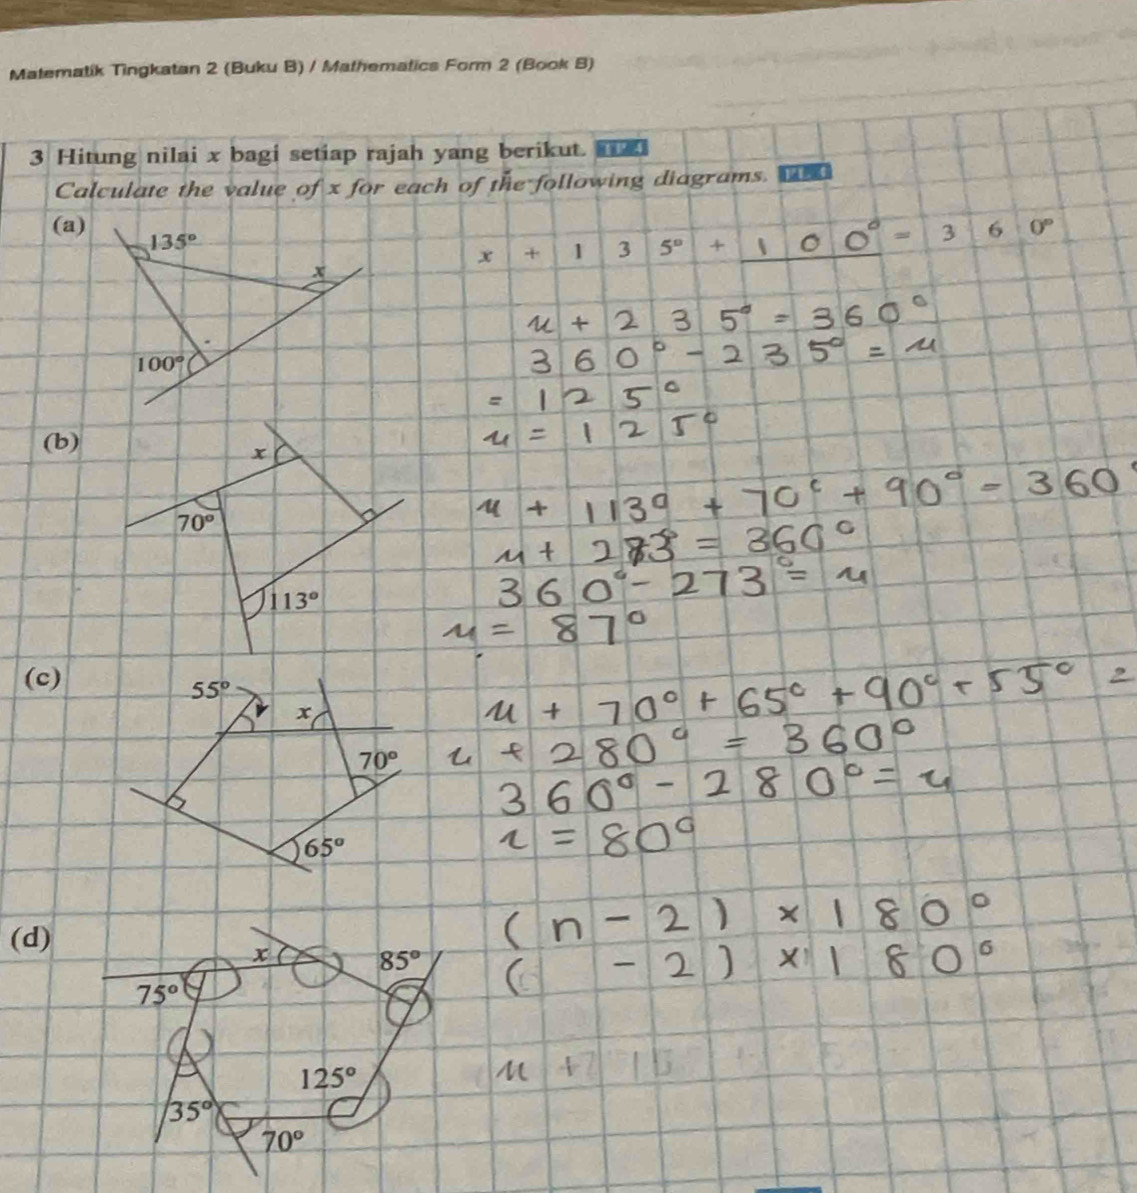 Matematik Tingkatan 2 (Buku B) / Mathematics Form 2 (Book B)
3 Hitung nilai x bagi setiap rajah yang berikut. TP 4
Calculate the value of x for each of the following diagrams. PL 4
(a)
135°
x
100°
x + 135° + 100° = 360°
x + 235° = 360°
360° - 235° = x
= 125°
x = 125°
(b)
x
70°
113°
x + 113° + 70° + 90° = 360°
x + 273 = 360°
360° - 273° = x
x = 87°
(c)
55°
x
70°
65°
x + 70° + 65° + 90° + 55° =
x + 280° = 360°
360° - 280° = x
x = 80°
(d)
x
85°
75°
125°
35°
70°
(n - 2) × 180°
( - 2) × 180°
x +